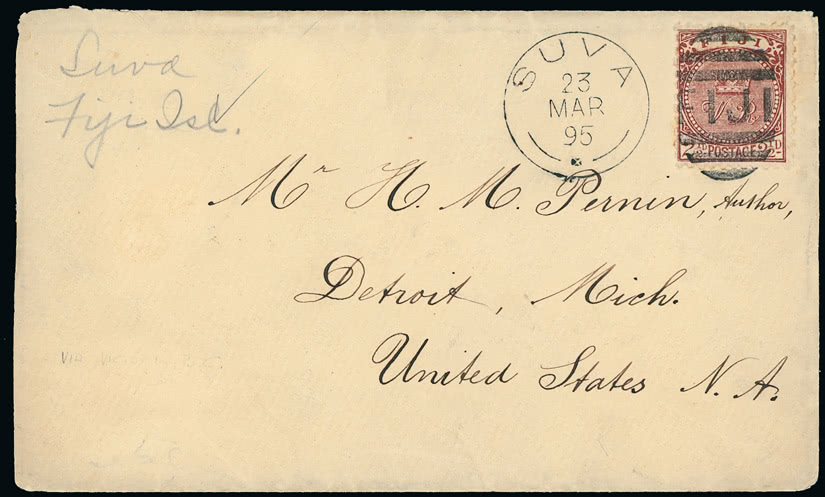 Suva
Fiji Isl.
SUVA
23
MAR
95
FIJI
V R
IJI
POSTAGE
2½D
Mr H. M. Pernin, Author,
Detroit, Mich.
United States N. A.
VIA